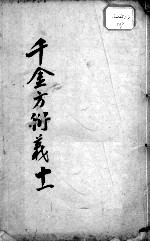 千金方衍義十一